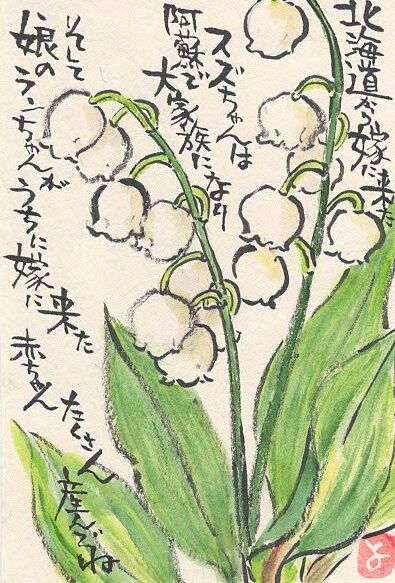 北海道から嫁に来た
スズちゃんは
阿蘇で
大家族になり
そして
娘のランちゃんが
うちに嫁に来た
赤ちゃん
たくさん
産んでね
よ